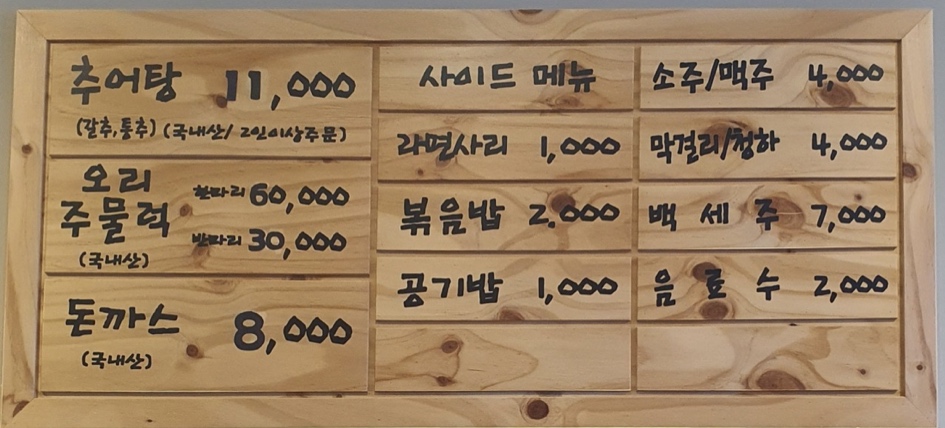 추어탕 11,000
(갈추,통추) (국내산/ 2인이상주문)
오리
주물럭
한마리 60,000
반마리 30,000
(국내산)
돈까스 8,000
(국내산)
사이드 메뉴
라면사리 1,000
볶음밥 2,000
공기밥 1,000
소주/맥주 4,000
막걸리/청하 4,000
백 세 주 7,000
음 료 수 2,000